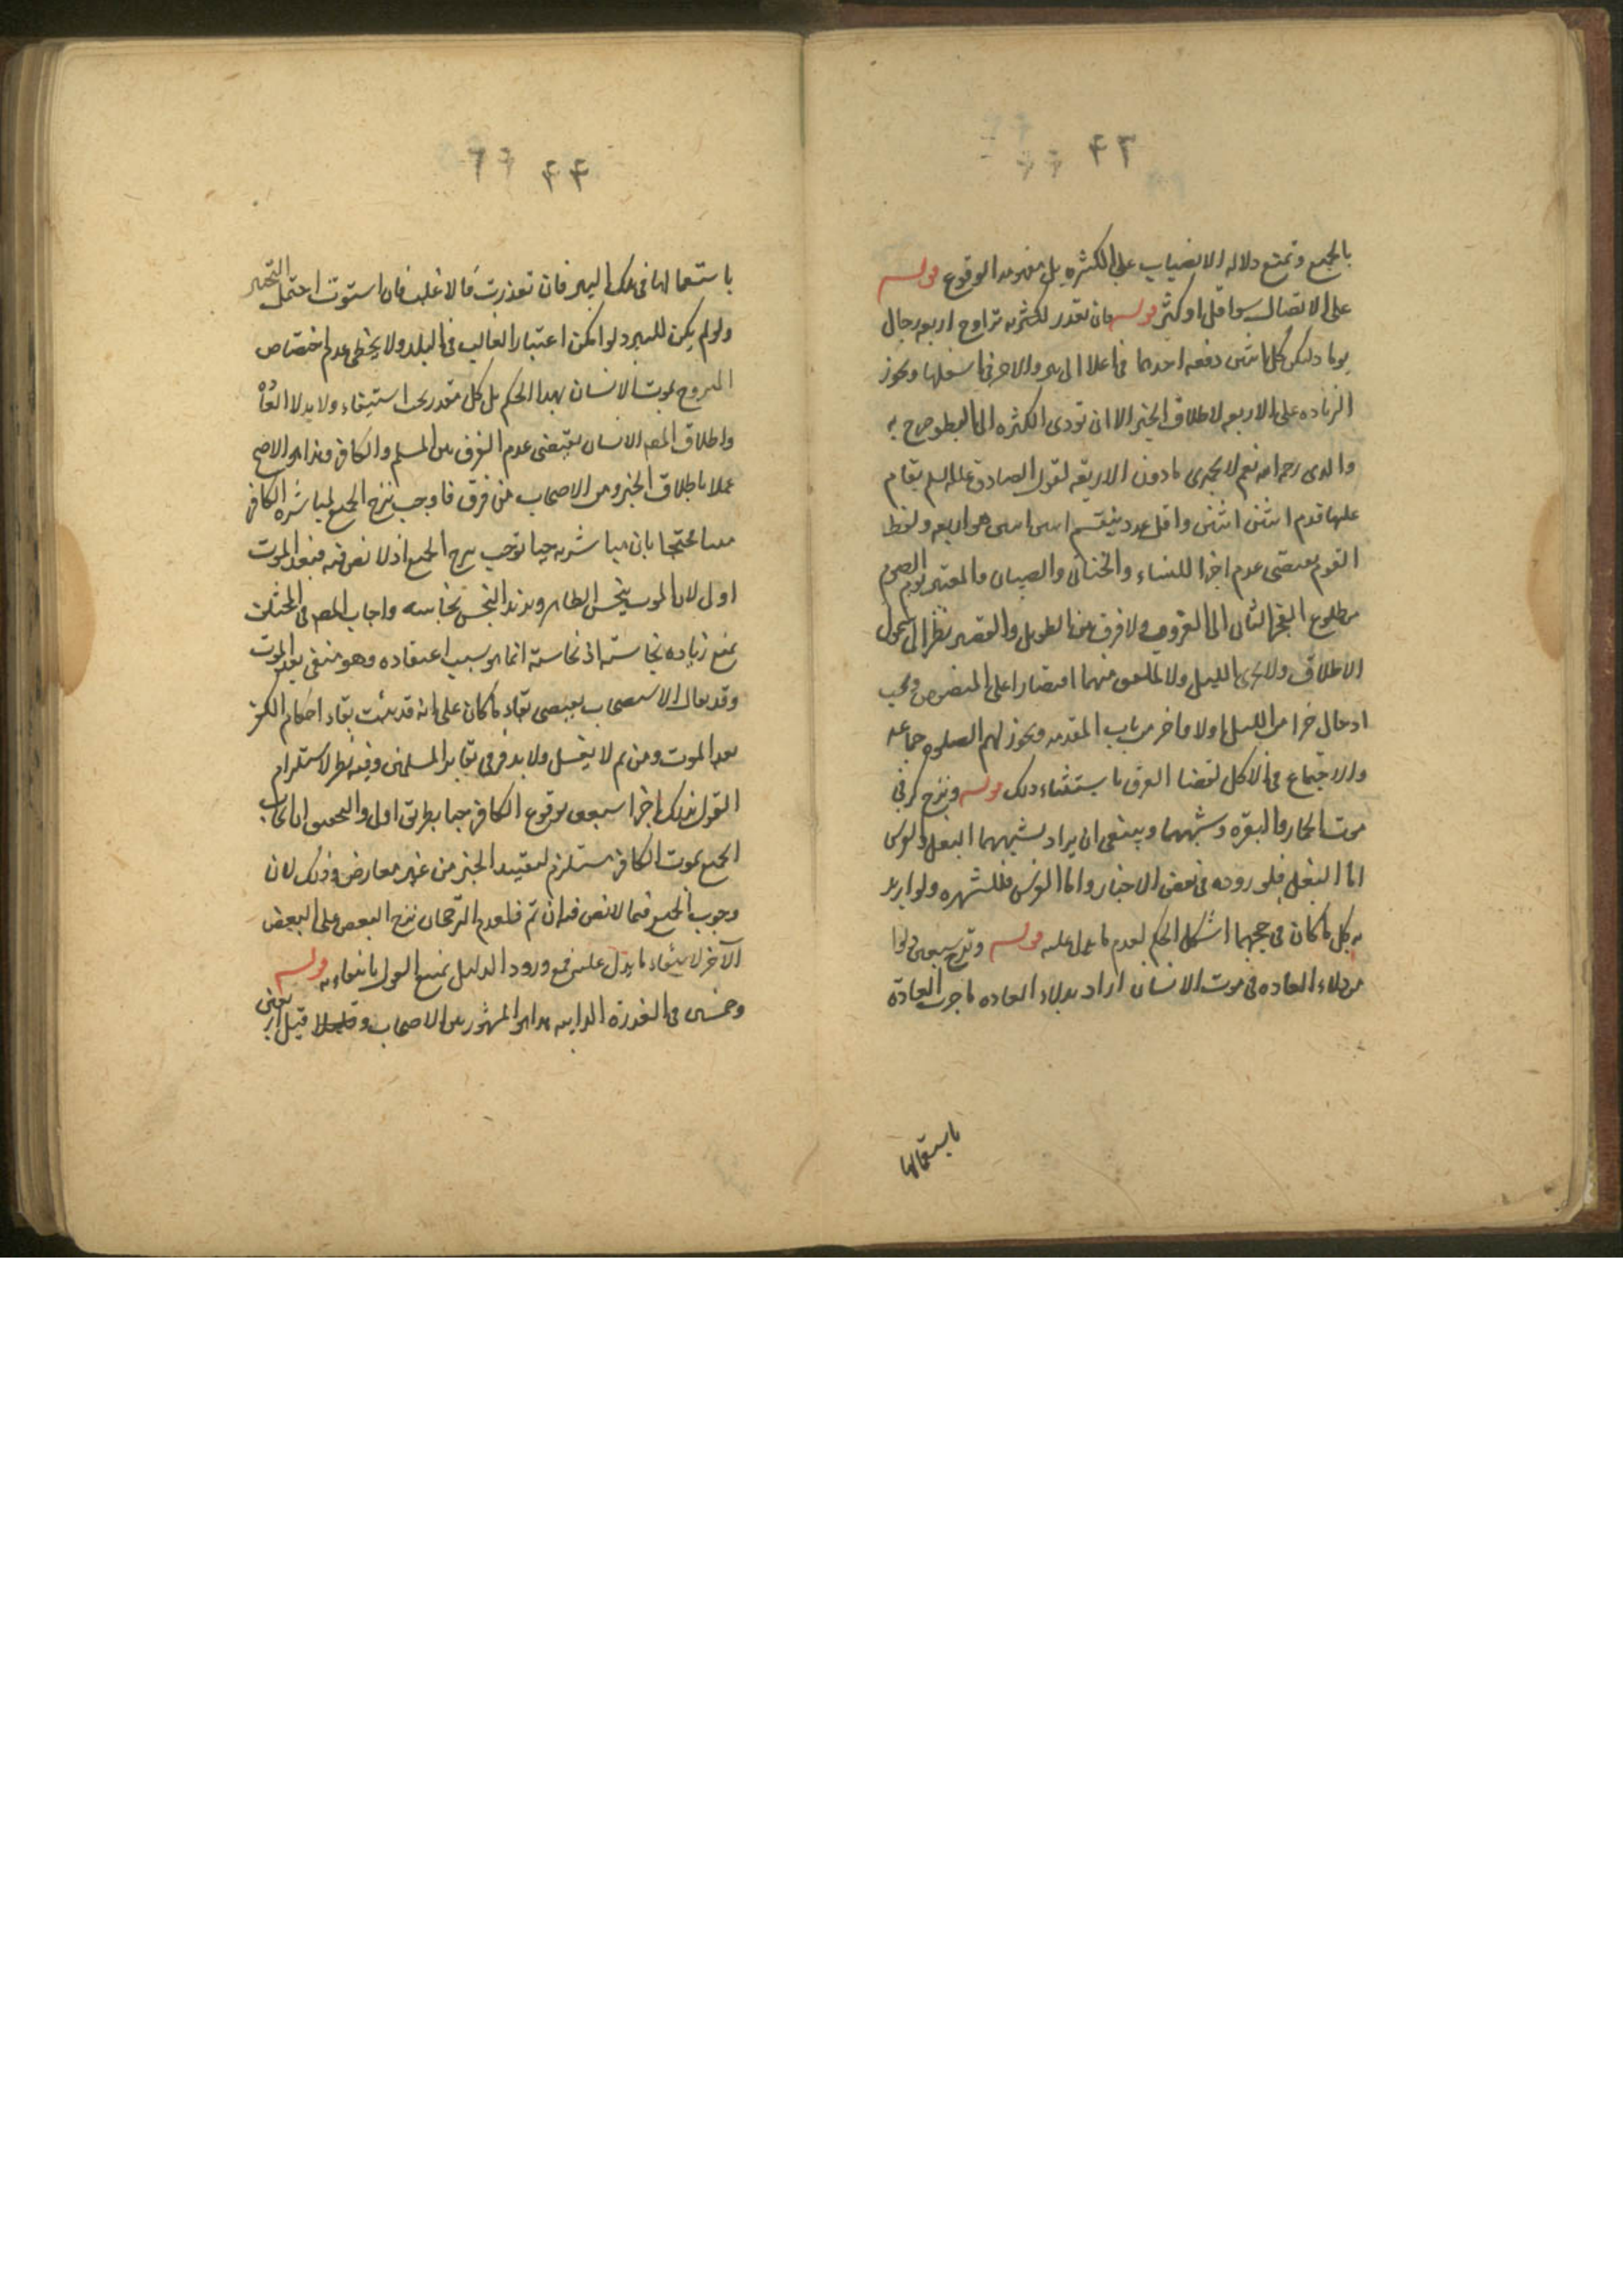 ۴۳
بالجميع وتمنع دلاله الانصباب على الكثره بل مفهومه الوقوع قوله
على الاتصال سوا قل او كثر قوله فان تعذر لكثرته تراوح اربعه رجال
يوما وليكن كل اثنين دفعه احدهما فى اعلا البير والاخر فى اسفلها ويجوز
الزياده على الاربعه لاطلاق الخبر الا ان تودى الكثره الى البطو صرح به
والدى رحمه الله نعم لا يجزى ما دون الاربعه لقول الصادق عليه السلم يقام
عليها قوم اثنين اثنين واقل عدد ينقسم اثنين اثنين هو اربعه ولفظ
القوم يقتضى عدم اجزا النساء والخناثى والصبيان والمعتبر يوم الصوم
من طلوع الفجر الثانى الى الغروب ولا فرق بين الطويل والقصير نظرا الى شمول
الاطلاق ولا يجزى الليل ولا الملفق منهما اقتصارا على المنصوص ويجب
ادخال جزا من الليل اولا واخر من باب المقدمه ويجوز لهم الصلوه جماعه
والاجتماع فى الاكل لقضا العرف باستثناء ذلك قوله ونزح كر فى
موت الحمار والبقره وشبههما وينبغى ان يراد بشبههما البغل والفرس
اما البغل فلوروده فى بعض الاخبار واما الفرس فللشهره ولو اريد
به كل ما كان فى حجمهما اشكل الحكم لعدم ما يدل عليه قوله ونزح سبعين دلوا
من دلاء العاده فى موت الانسان اراد بدلاء العاده ما جرت العادة
باستعمالها
۴۴
باستعمالها فى تلك البير فان تعذرت فالاغلب فان استوت احتمل التخير
ولو لم يكن للبير دلو امكن اعتبار الغالب فى البلد ولا يخفى عدم اختصاص
المنزوح لموت الانسان بهذا الحكم بل كل مقدر يجب استيفاء ولا بدلا العاده
واطلاق المصـ الانسان يقتضى عدم الفرق بين المسلم والكافر وهذا هو الاصح
عملا باطلاق الخبر ومن الاصحاب من فرق فاوجب نزح الجميع لمباشرة الكافر
ميتا محتجا بان مباشرته حيا توجب نزح الجميع اذ لا نص فيه فبعد الموت
اولى لان الموت ينجس الطاهر ويزيد النجس نجاسه واجاب المصـ فى المختلف
بمنع زياده نجاسته اذ نجاسته انما هو بسبب اعتقاده وهو منفى بعد الموت
وقد يقال الاستصحاب يقتضى بقاء ما كان على انه قد يثبت بقاء احكام الكفر
بعد الموت ومن ثم لا يغسل ولا يدفن فى مقابر المسلمين وفيه نظر لاستلزام
القول بذلك اجزا سبعين لوقوع الكافر حيا بطريق اولى والتحقيق ان ايجاب
الجميع بموت الكافر مستلزم لتقييد الخبر من غير معارض وذلك لان
وجوب الجميع فيما لا نص فيه ان تم فلعدم الترجحان نزح البعض على البعض
الآخر لانتفاء ما يدل عليه فمع ورود الدليل يمنع القول بانتفاءه قوله
وخمسين فى العذرة الذايبه هذا هو المشهور بين الاصحاب وقيل اربعين